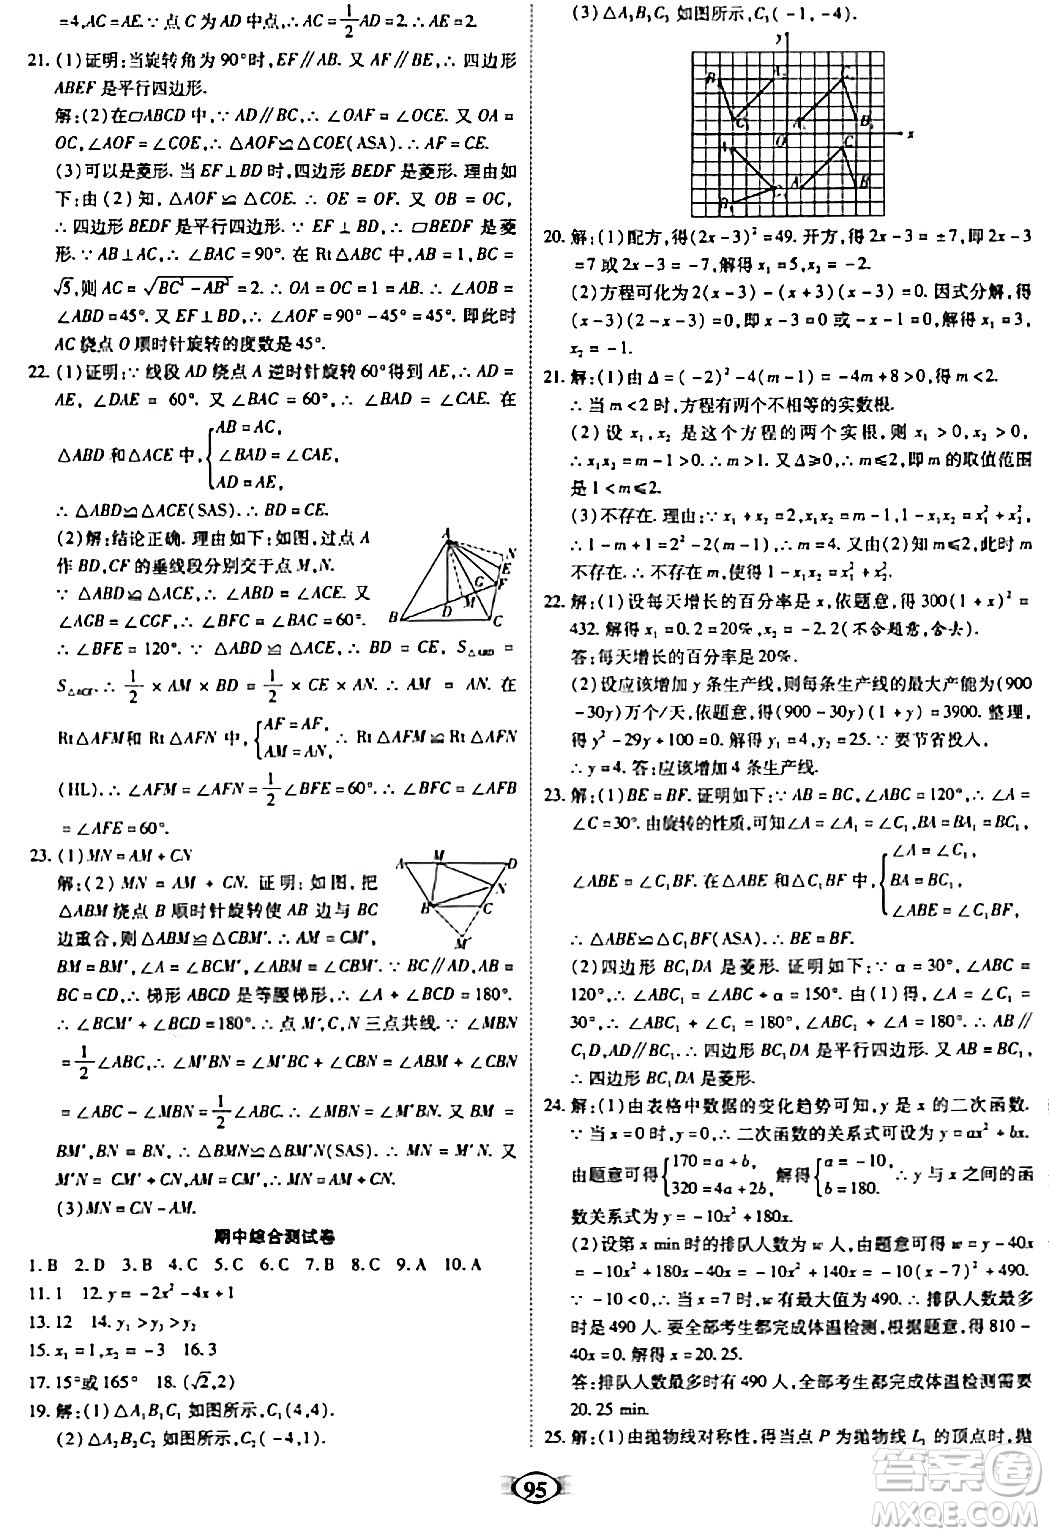 =4,AC=AE.∵点C为AD中点,∴AC=1/2AD=2.∴AE=2.
21.(1)证明:当旋转角为90°时,EF∥AB.又AF∥BE,∴四边形
ABEF是平行四边形.
解:(2)在▱ABCD中,∵AD∥BC,∴∠OAF=∠OCE.又OA=
OC,∠AOF=∠COE,∴△AOF≌△COE(ASA).∴AF=CE.
(3)可以是菱形.当EF⊥BD时,四边形BEDF是菱形.理由如
下:由(2)知,△AOF≌△COE.∴OE=OF.又OB=OC,
∴四边形BEDF是平行四边形.∵EF⊥BD,∴▱BEDF是菱
形.∵AB⊥AC,∴∠BAC=90°.在Rt△ABC中,AB=1,BC=
√5,则AC=√(BC²-AB²)=2.∴OA=OC=1=AB.∴∠AOB=
∠ABD=45°.又EF⊥BD,∴∠AOF=90°-45°=45°.即此时
AC绕点O顺时针旋转的度数是45°.
22.(1)证明:∵线段AD绕点A逆时针旋转60°得到AE,∴AD=
AE,∠DAE=60°.又∠BAC=60°,∴∠BAD=∠CAE.在
△ABD和△ACE中,{AB=AC,
∠BAD=∠CAE,
AD=AE,
∴△ABD≌△ACE(SAS).∴BD=CE.
(2)解:结论正确.理由如下:如图,过点A
作BD,CF的垂线段分别交于点M,N.
∵△ABD≌△ACE,∴∠ABD=∠ACE.又
∠AGB=∠CGF,∴∠BFC=∠BAC=60°.
∴∠BFE=120°.∵△ABD≌△ACE,∴BD=CE,S△ABD=
S△ACE.∴1/2×AM×BD=1/2×CE×AN.∴AM=AN.在
Rt△AFM和Rt△AFN中,{AF=AF,
AM=AN,
∴Rt△AFM≌Rt△AFN
(HL).∴∠AFM=∠AFN.∴∠BFE=1/2∠BFE=60°.
=∠AFE=60°.
23.(1)MN=AM+CN
解:(2)MN=AM+CN.证明:如图,把
△ABM绕点B顺时针旋转使AB边与BC
边重合,则△ABM≌△CBM′.∴AM=CM′,
BM=BM′,∠A=∠BCM′,∠ABM=∠M′BC.∵BC∥AD,AB=
BC=CD,∴梯形ABCD是等腰梯形,∴∠A+∠BCD=180°.
∴∠BCM′+∠BCD=180°.∴点M′,C,N三点共线.∵∠MBN
=1/2∠ABC,∴∠M′BN=∠M′BC+∠CBN=∠ABM+∠CBN=
∠ABC-∠MBN=1/2∠ABC.∴∠MBN=∠M′BN.又BM=
BM′,BN=BN,∴△NBM≌△NBM′(SAS).∴MN=M′N.∵
M′N=CM′+CN=AM+CN,∴MN=AM+CN.
(3)MN=CN-AM.
期中综合测试卷
1.B 2.D 3.B 4.C 5.C 6.B 7.C 8.C 9.A 10.A
11.1 12.y=-2x²-4x+1
13.12 14.y₁>y₃>y₂
15.x₁=1,x₂=-3 16.3
17.15°或165° 18.(√2,2)
19.解:(1)△A₁B₁C₁如图所示,C₁(4,4).
(2)△A₂B₂C₂如图所示,C₂(-4,1).
(3)△A₃B₃C₃如图所示,C₃(-1,-4).
20.解:(1)配方,得(2x-3)²=49.开方,得2x-3=±7,即2x-3
=7或2x-3=-7,解得x₁=5,x₂=-2.
(2)方程可化为2(x-3)-x(x-3)=0.因式分解,得
(x-3)(2-x)=0.∴x-3=0或-x-1=0,解得x₁=3,
x₂=-1.
21.解:(1)由Δ=(-2)²-4(m-1)=-4m+8>0,得m<2.
∴当m<2时,方程有两个不相等的实数根.
(2)设x₁,x₂是这个方程的两个实根,则x₁>0,x₂>0,
∴x₁x₂=m-1>0.∴m>1.又Δ≥0,∴m≤2,即m的取值范围
是1<m≤2.
(3)不存在.理由:∵x₁+x₂=2,x₁x₂=m-1,1-x₁x₂=x₁²+x₂²,
∴1-m+1=2²-2(m-1).∴m=4.又(2)知1<m≤2,此时m
不存在.∴不存在m,使得1-x₁x₂=x₁²+x₂²成立.
22.解:(1)设每天增长的百分率是x,依题意,得300(1+x)²=
432.解得x₁=0.2=20%,x₂=-2.2(不合题意,舍去).
答:每天增长的百分率是20%.
(2)设应该增加y条生产线,则每条生产线的最大产能为(900
-30y)万个/天,依题意,得(900-30y)(1+y)=3900.整理,
得y²-29y+100=0.解得y₁=4,y₂=25.∵要节省投入,
∴y=4.答:应该增加4条生产线.
23.解:(1)BE=BF.证明如下:∵AB=BC,∠ABC=120°,∴∠A=
∠C=30°.由旋转的性质,可知∠A=∠A₁=∠C₁,BA=BA₁=BC₁,
∠ABE=∠C₁BF.在△ABE和△C₁BF中,{∠A=∠C₁,
BA=BC₁,
∠ABE=∠C₁BF,
∴△ABE≌△C₁BF(ASA).∴BE=BF.
(2)四边形BC₁DA是菱形.证明如下:∵α=30°,∠ABC=
120°,∴∠ABC₁=∠ABC+α=150°.由(1)得,∠A=∠C₁=
30°,∴∠ABC₁+∠C₁=180°,∠ABC₁+∠A=180°,∴AB∥
C₁D,AD∥BC₁.∴四边形BC₁DA是平行四边形.又AB=BC₁,
∴四边形BC₁DA是菱形.
24.解:(1)由表格中数据的变化趋势可知,y是x的二次函数.
∵当x=0时,y=0,∴二次函数的关系式可设为y=ax²+bx.
由题意可得{170=a+b,
320=4a+2b,
解得{a=-10,
b=180.
∴y与x之间的函
数关系式为y=-10x²+180x.
(2)设第x min时的排队人数为w,由题意可得w=y-40x
=-10x²+180x-40x=-10x²+140x=-10(x-7)²+490.
∵-10<0,∴当x=7时,w有最大值为490.∴排队人数最多
时是490人.要全部考生都完成体温检测,根据题意,得810-
40x=0.解得x=20.25.
答:排队人数最多时有490人,全部考生都完成体温检测需要
20.25 min.
25.解:(1)由抛物线对称性,得当点P为抛物线L₁的顶点时,抛
95
答案圈
MXQE.COM